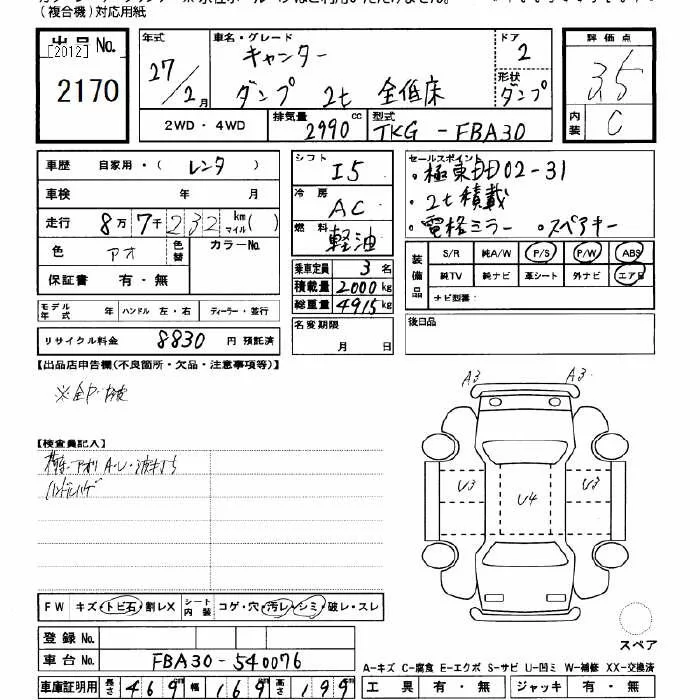 (複合機)対応用紙
出品 No.
[2012]
2170
年式
27/2月
車名・グレード
キャンター
ダンプ 2t 全低床
ドア
2
形状
ダンプ
2WD・4WD
排気量
2990 cc
型式
TKG - FBA30
評価点
3.5
内装
C
車歴 自家用・( レンタ )
車検 年 月
走行 8万7千232 km マイル( )
色 アオ 色替 カラーNo.
保証書 有・無
モデル年式 年 ハンドル 左・右 ディーラー・並行
リサイクル料金 8830 円 預託済
シフト
I5
冷房
AC
燃料
軽油
乗車定員 3 名
積載量 2000 kg
総重量 4915 kg
名変期限
月 日
セールスポイント
・極東DD02-31
・2t積載
・電格ミラー ・スペアキー
装備品
S/R 純A/W P/S P/W ABS
純TV 純ナビ 革シート 外ナビ エアB
ナビ型番:
後日品
【出品店申告欄(不良箇所・欠品・注意事項等)】
【検査員記入】
ハンドルハゲ
A3 A3
U3 U4 U3
FW キズ・トビ石・割レX シート内装 コゲ・穴・汚レ・シミ・破レ・スレ
登録 No.
車台 No. FBA30-540076
車庫証明用 長さ 469 幅 169 高さ 199
スペア
A-キズ C-腐食 E-エクボ S-サビ U-凹ミ W-補修 XX-交換済
工具 有・無 ジャッキ 有・無